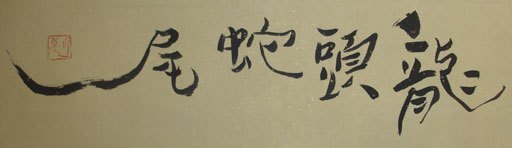 龍頭蛇尾